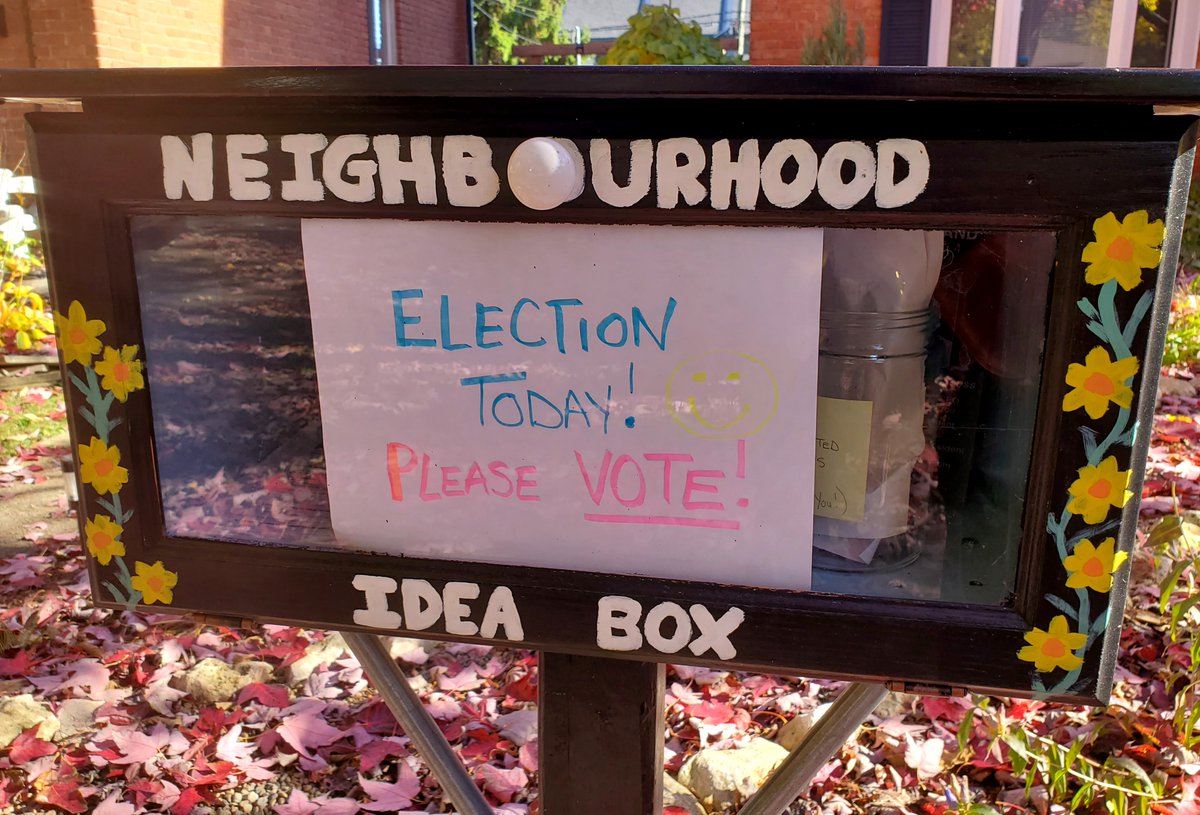 NEIGHBOURHOOD
ELECTION
TODAY!
PLEASE VOTE!
IDEA BOX